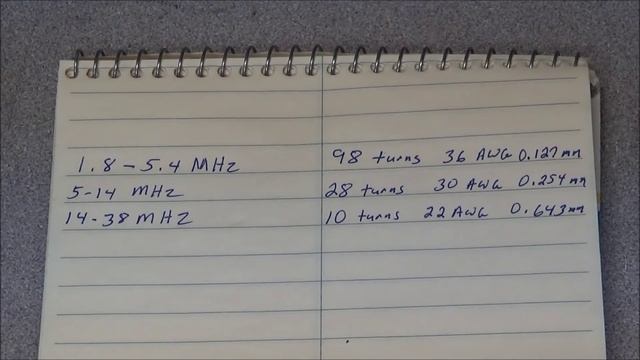 1.8 - 5.4 MHz 98 turns 36 AWG 0.127mm
5-14 MHz 28 turns 30 AWG 0.254mm
14-38 MHz 10 turns 22 AWG 0.643mm